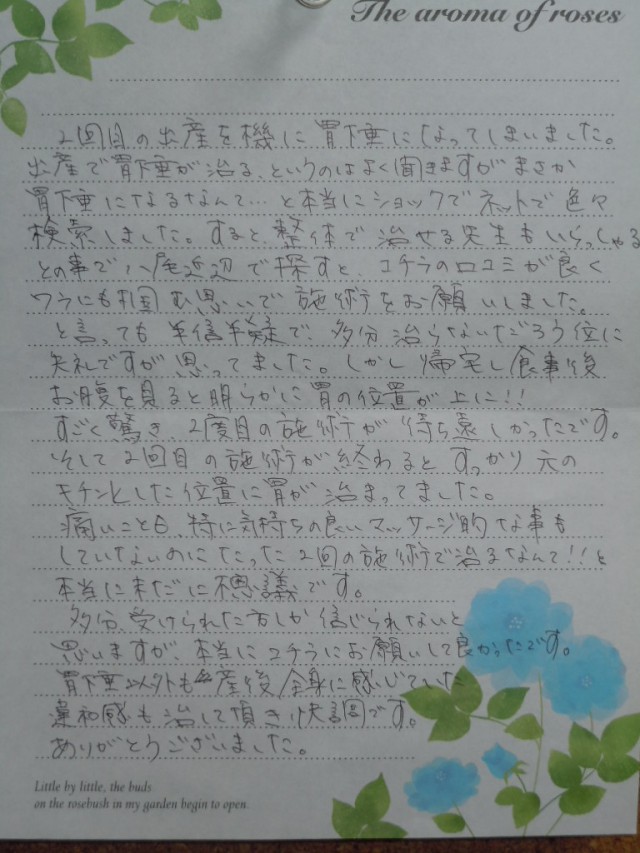 The aroma of roses
2回目の出産を機に胃下垂になってしまいました。
出産で胃下垂が治る、というのはよく聞きますがまさか
胃下垂になるなんて…と本当にショックでネットで色々
検索しました。すると、整体で治せる先生もいらっしゃる
との事で八尾近辺で探すと、コチラの口コミが良く
ワラにも掴む思いで施術をお願いしました。
と言っても半信半疑で多分治らないだろう位に
失礼ですが思ってました。しかし帰宅し食事後
お腹を見ると明らかに胃の位置が上に!!
すごく驚き、2度目の施術が待ち遠しかったです。
そして2回目の施術が終わるとすっかり元の
キチンとした位置に胃が治まってました。
痛いことも、特に気持ちの良いマッサージ的な事も
していないのにたった2回の施術で治るなんて!!と
本当に未だに不思議です。
多分、受けられた方しか信じられないと
思いますが、本当にコチラにお願いして良かったです。
胃下垂以外も産後全身に感じていた
違和感も治して頂き快調です。
ありがとうございました。
Little by little, the buds
on the rosebush in my garden begin to open.